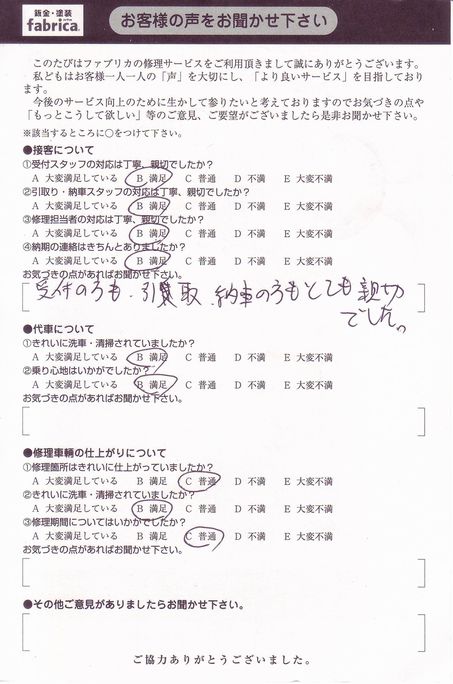 鈑金・塗装
fabrica.
お客様の声をお聞かせ下さい
このたびはファブリカの修理サービスをご利用頂きまして誠にありがとうございます。
私どもはお客様一人一人の「声」を大切にし、「より良いサービス」を目指しており
ます。
今後のサービス向上のために生かして参りたいと考えておりますのでお気づきの点や
「もっとこうして欲しい」等のご意見、ご要望がございましたら是非お聞かせ下さい。
※該当するところに○をつけて下さい。
●接客について
①受付スタッフの対応は丁寧、親切でしたか?
A 大変満足している B 満足 C 普通 D 不満 E 大変不満
②引取り・納車スタッフの対応は丁寧、親切でしたか?
A 大変満足している B 満足 C 普通 D 不満 E 大変不満
③修理担当者の対応は丁寧、親切でしたか?
A 大変満足している B 満足 C 普通 D 不満 E 大変不満
④納期の連絡はきちんとありましたか?
A 大変満足している B 満足 C 普通 D 不満 E 大変不満
お気づきの点があればお聞かせ下さい。
受付の方も、引取、納車の方もとても親切
でした。
●代車について
①きれいに洗車・清掃されていましたか?
A 大変満足している B 満足 C 普通 D 不満 E 大変不満
②乗り心地はいかがでしたか?
A 大変満足している B 満足 C 普通 D 不満 E 大変不満
お気づきの点があればお聞かせ下さい。
●修理車輌の仕上がりについて
①修理箇所はきれいに仕上がっていましたか?
A 大変満足している B 満足 C 普通 D 不満 E 大変不満
②きれいに洗車・清掃されていましたか?
A 大変満足している B 満足 C 普通 D 不満 E 大変不満
③修理期間についてはいかがでしたか?
A 大変満足している B 満足 C 普通 D 不満 E 大変不満
お気づきの点があればお聞かせ下さい。
●その他ご意見がありましたらお聞かせ下さい。
ご協力ありがとうございました。